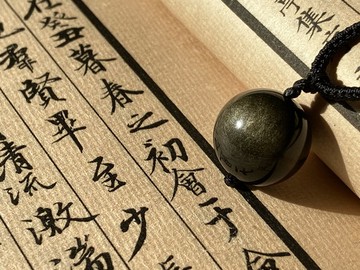 亭集
在癸丑暮春之初會于會
也羣賢畢至少長
清流激湍